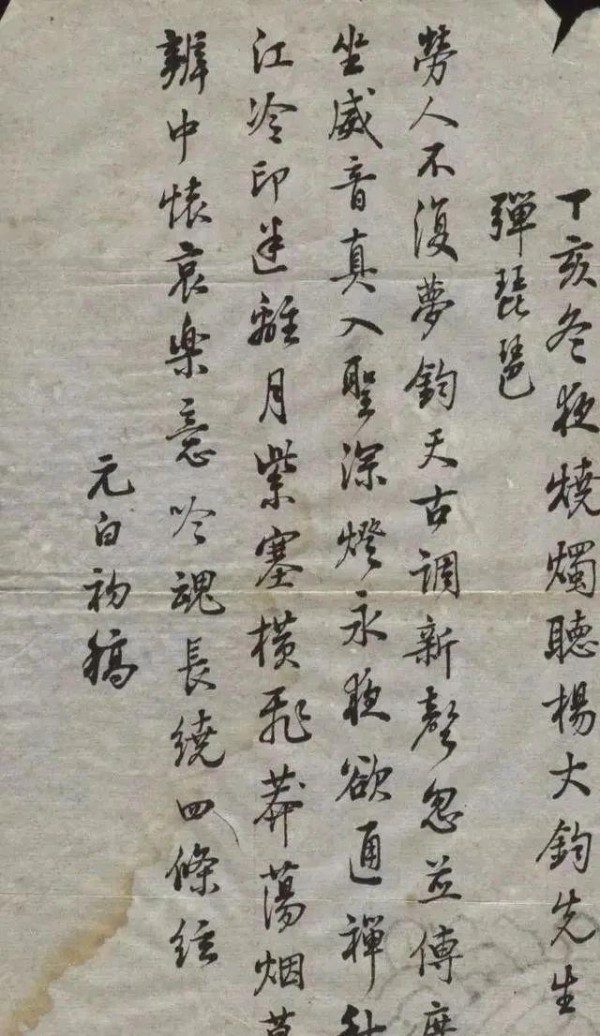 丁亥冬夜燒燭聽楊大鈞先生
彈琵琶
勞人不復夢鈞天古調新聲忽並傳廣
坐威音真入聖深燈永夜欲通禪秋
江冷印迷離月紫塞橫飛莽蕩烟莫
辨中懷哀楽意吟魂長繞四條絃
元白初稿